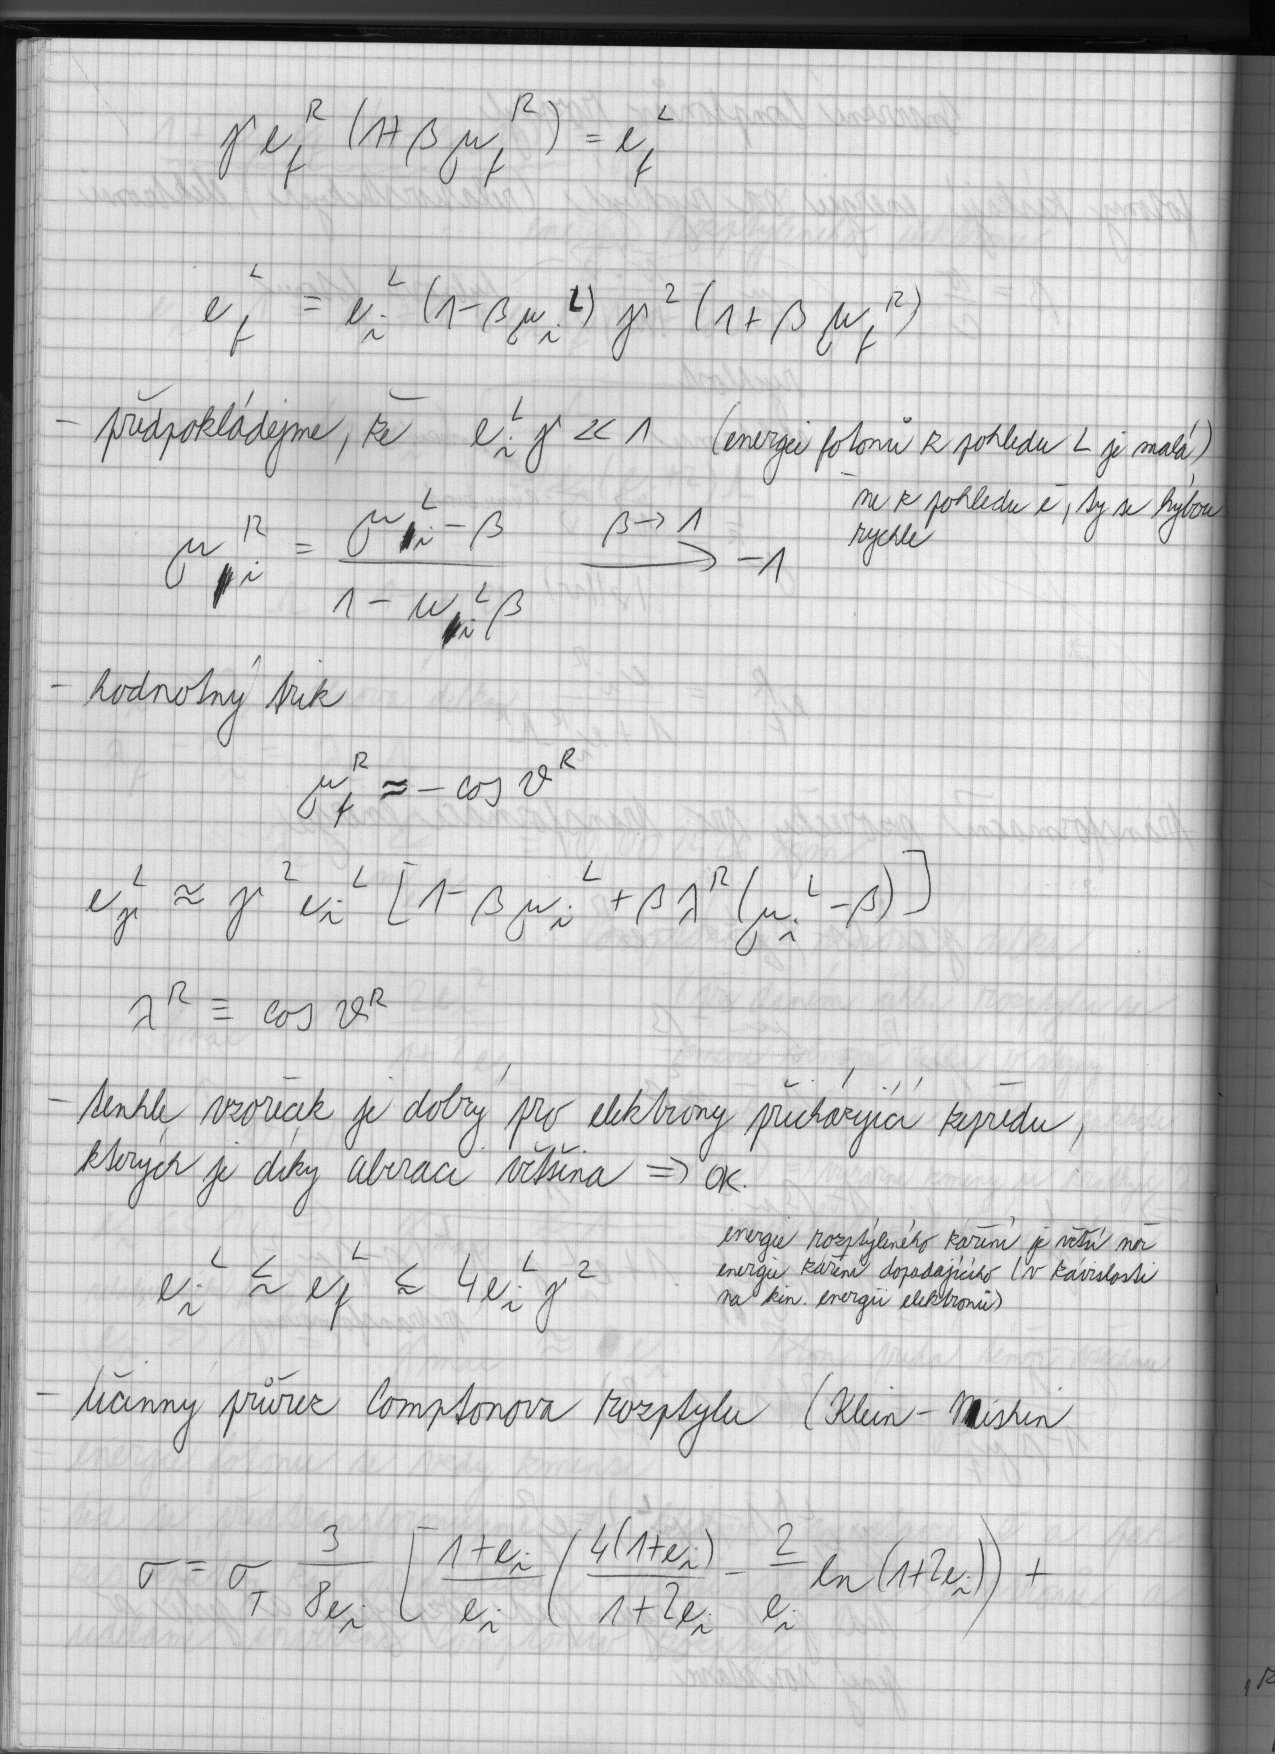 γ e_f^R (1+ β μ_f^R) = e_f^L
e_f^L = e_i^L (1-β μ_i^L) γ^2 (1+ β μ_f^R)
- předpokládejme, že e_i^L γ << 1 (energie fotonů z pohledu L je malá)
ne z pohledu e^-, ty se hýbou
rychle
μ_i^R = (μ_i^L - β) / (1 - μ_i^L β) \xrightarrow{β→1} -1
- hodnotný trik
μ_f^R ≈ - cos ϑ^R
e_γ^L ≈ γ^2 e_i^L [1-β μ_i^L + β λ^R (μ_i^L - β)]
λ^R ≡ cos ϑ^R
- tenhle vzoreček je dobrý pro elektrony přicházející zepředu,
kterých je díky aberaci většina => OK.
energie rozptýleného záření je větší než
energie záření dopadajícího (v závislosti
na kin. energii elektronů)
e_i^L ≲ e_f^L ≲ 4e_i^L γ^2
- Účinný průřez Comptonova rozptylu (Klein-Nishin
σ = σ_T 3/(8e_i) [ (1+e_i)/e_i ( 4(1+e_i)/(1+2e_i) - 2/e_i ln(1+2e_i) ) +